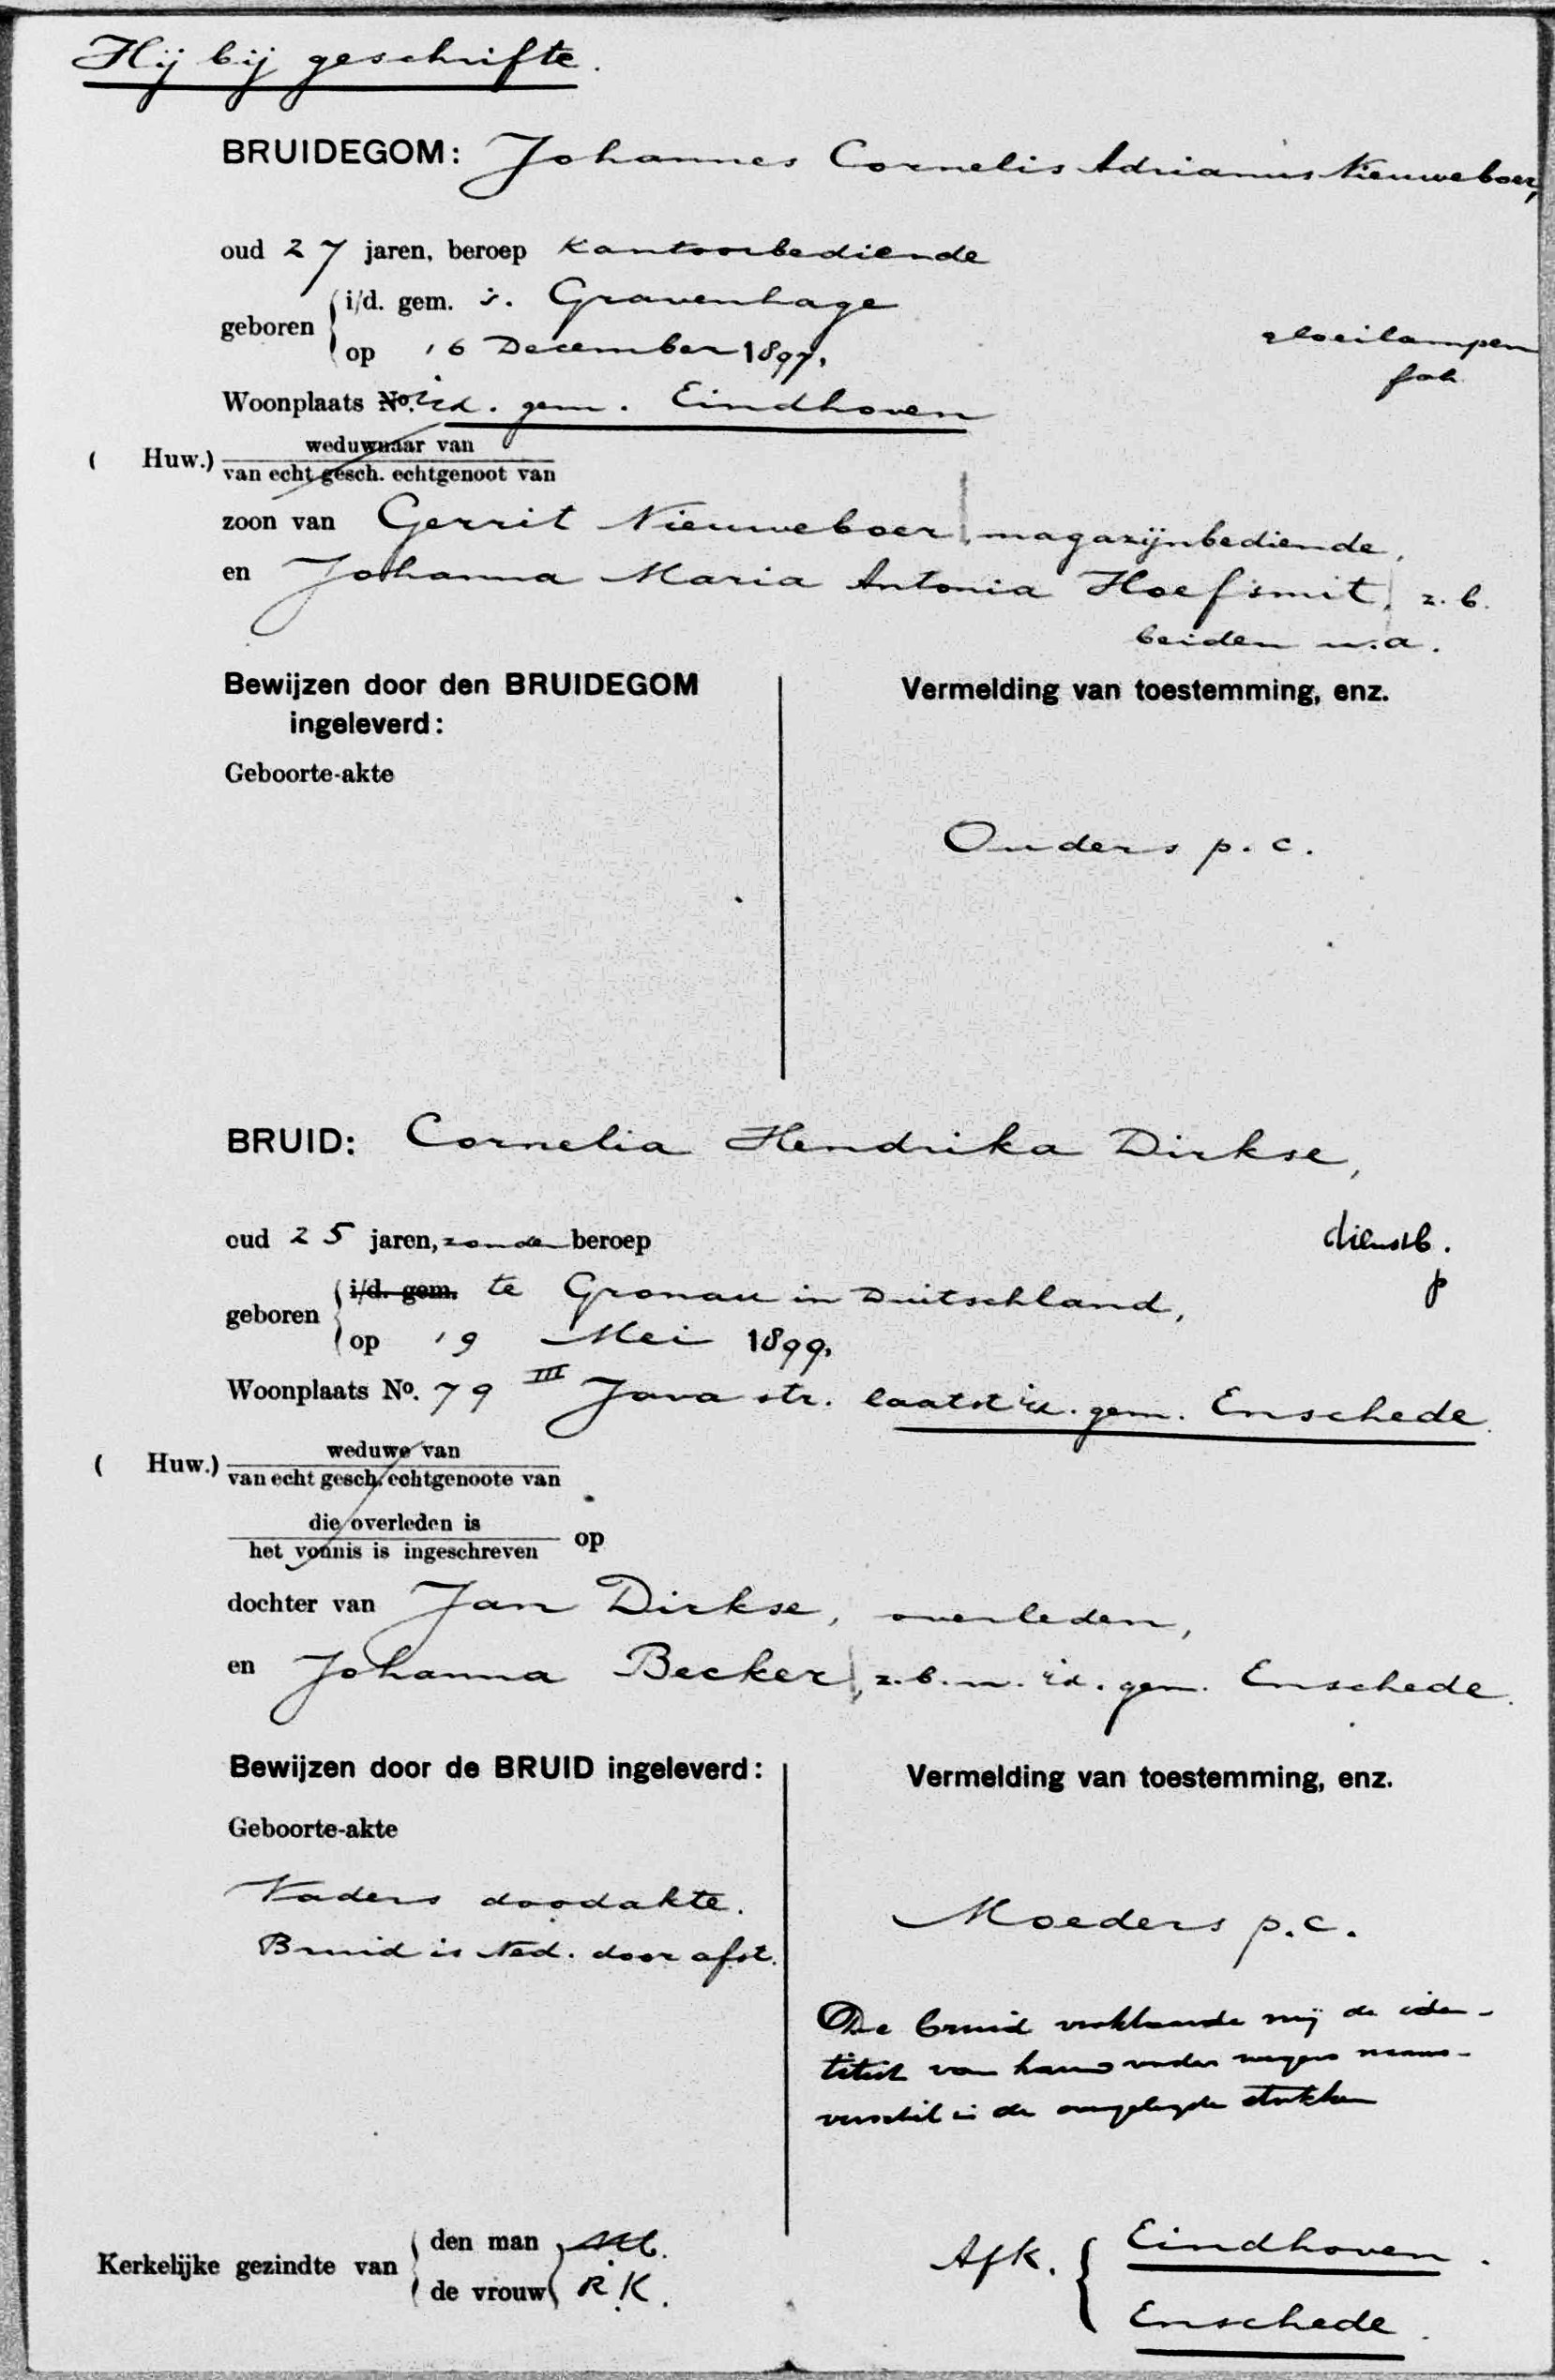 Hij bij geschrifte.
BRUIDEGOM: Johannes Cornelis Adrianus Nieuweboer,
oud 27 jaren, beroep Kantoorbediende
geboren
i/d. gem. s. Gravenhage
op 16 December 1897.
gloeilampen
fab
Woonplaats No. i.d. gem. Eindhoven
( Huw.) weduwnaar van
van echt gesch. echtgenoot van
zoon van Gerrit Nieuweboer, magazijnbediende,
en Johanna Maria Antonia Hoefsmit, z. b.
beiden w.a.
Bewijzen door den BRUIDEGOM
ingeleverd:
Geboorte-akte
Vermelding van toestemming, enz.
Ouders p. c.
BRUID: Cornelia Hendrika Dirkse,
oud 25 jaren, zonder beroep
dienstb.
geboren
i/d. gem. te Gronau in Duitschland,
op 19 Mei 1899.
Woonplaats No. 79 III Java str. laatst i.d. gem. Enschede.
( Huw.) weduwe van
van echt gesch. echtgenoote van
die overleden is
het vonnis is ingeschreven op
dochter van Jan Dirkse, overleden,
en Johanna Becker, z.b.w. i.d. gem. Enschede.
Bewijzen door de BRUID ingeleverd:
Geboorte-akte
Vaders doodakte.
Bruid is Ned. door afst.
Vermelding van toestemming, enz.
Moeders p.c.
De bruid verklaarde mij de iden-
titeit van haar vader wegens naams-
verschil in de overgelegde stukken
Kerkelijke gezindte van
den man
de vrouw R.K.
Afk.
Eindhoven.
Enschede.